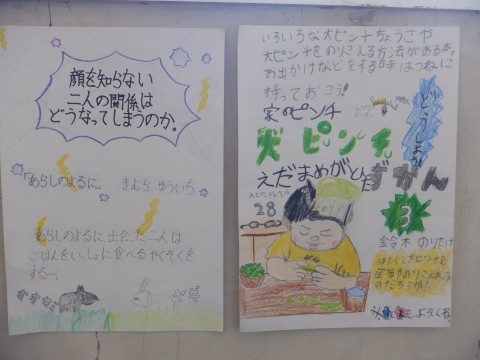 顔を知らない
二人の関係は
どうなってしまうのか。
「あらしのよるに」 きむら ゆういち
あらしのよるに、出会った二人は
ごはんをいっしょに食べるやくそくを
する…。
オオカミ
ヤギ
いろいろな大ピンチちょうさや
大ピンチをのりこえる方法がある本。
お出かけなどをする時はつねに
持っておこう!
家のピンチ
大ピンチ
ずかん
3
えだまめがとんだ
28
鈴木 のりたけ